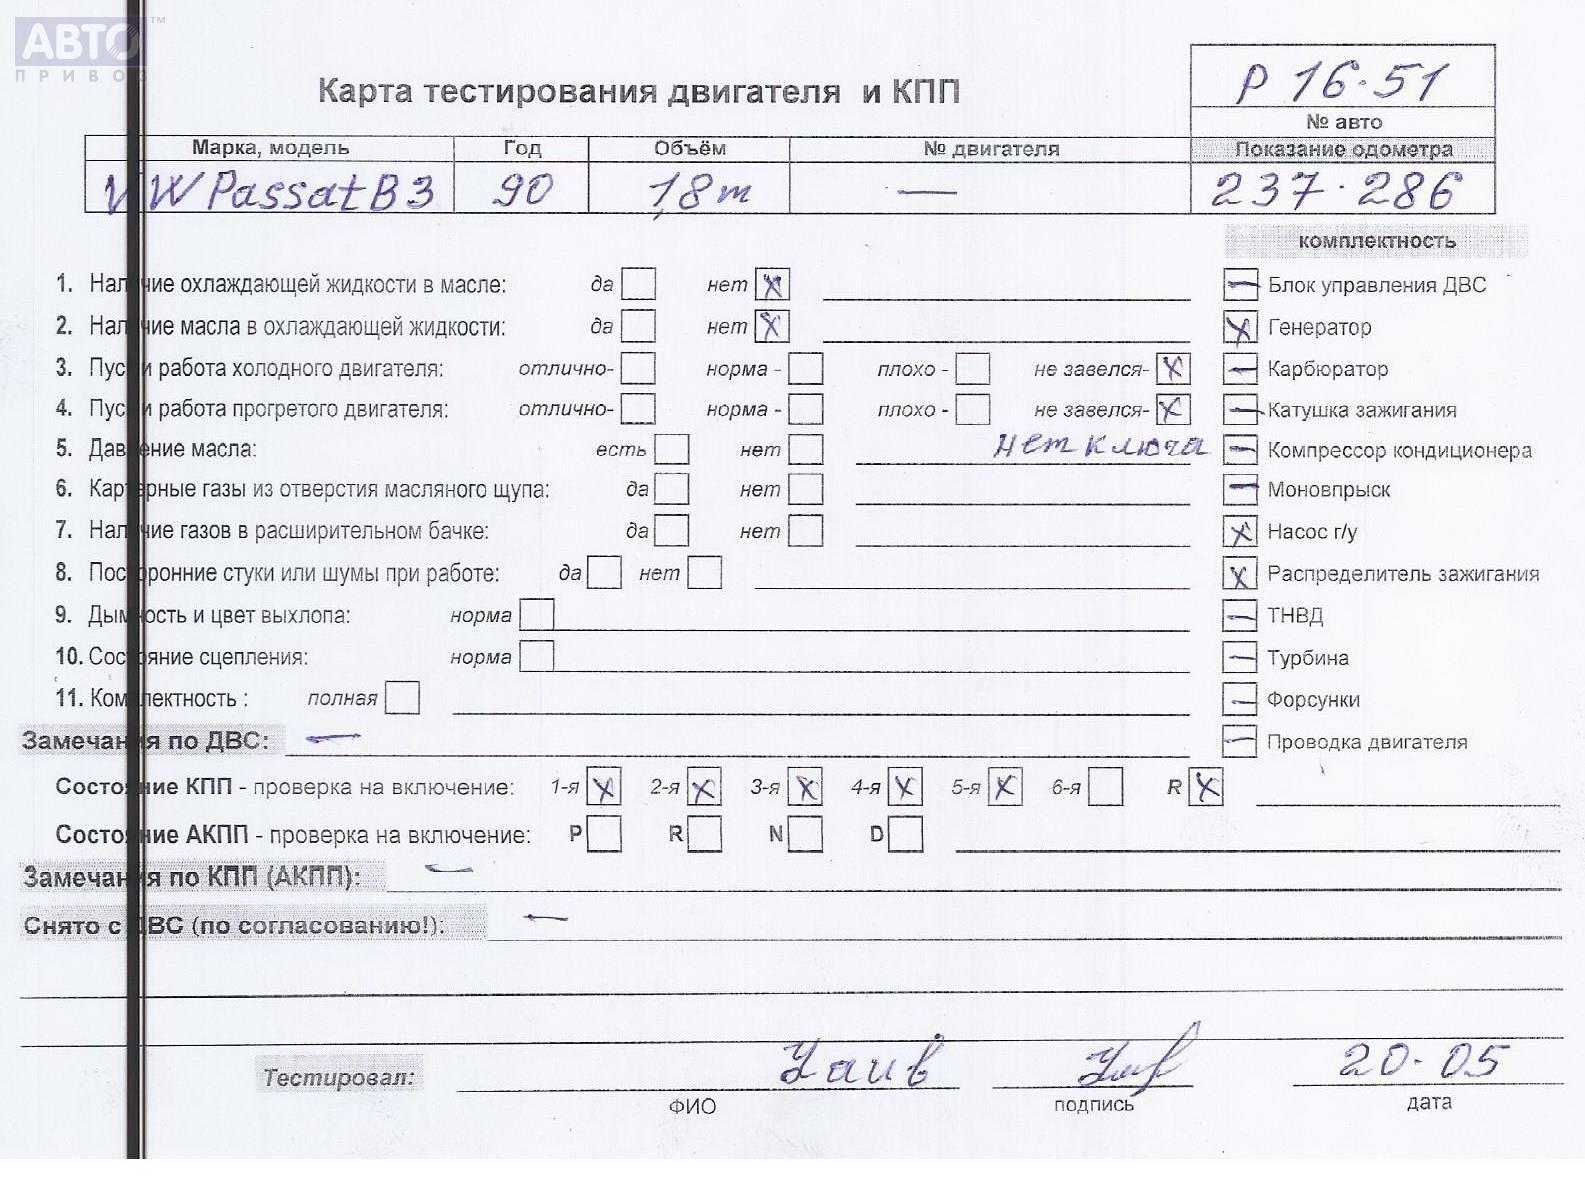 АВТО™
ПРИВОЗ
Карта тестирования двигателя и КПП
Р 16-51
№ авто
Марка, модель Год Объём № двигателя Показание одометра
VW Passat B3 90 1,8m — 237·286
комплектность
1. Наличие охлаждающей жидкости в масле: да нет X
2. Наличие масла в охлаждающей жидкости: да нет X
3. Пуск и работа холодного двигателя: отлично- норма - плохо - не завелся- X
4. Пуск и работа прогретого двигателя: отлично- норма - плохо - не завелся- X
5. Давление масла: есть нет нет ключа
6. Картерные газы из отверстия масляного щупа: да нет
7. Наличие газов в расширительном бачке: да нет
8. Посторонние стуки или шумы при работе: да нет
9. Дымность и цвет выхлопа: норма
10. Состояние сцепления: норма
11. Комплектность : полная
— Блок управления ДВС
X Генератор
— Карбюратор
— Катушка зажигания
— Компрессор кондиционера
— Моновпрыск
X Насос г/у
X Распределитель зажигания
— ТНВД
— Турбина
— Форсунки
— Проводка двигателя
Замечания по ДВС: —
Состояние КПП - проверка на включение: 1-я X 2-я X 3-я X 4-я X 5-я X 6-я R X
Состояние АКПП - проверка на включение: P R N D
Замечания по КПП (АКПП): —
Снято с ДВС (по согласованию!): —
Тестировал: 20-05
ФИО подпись дата